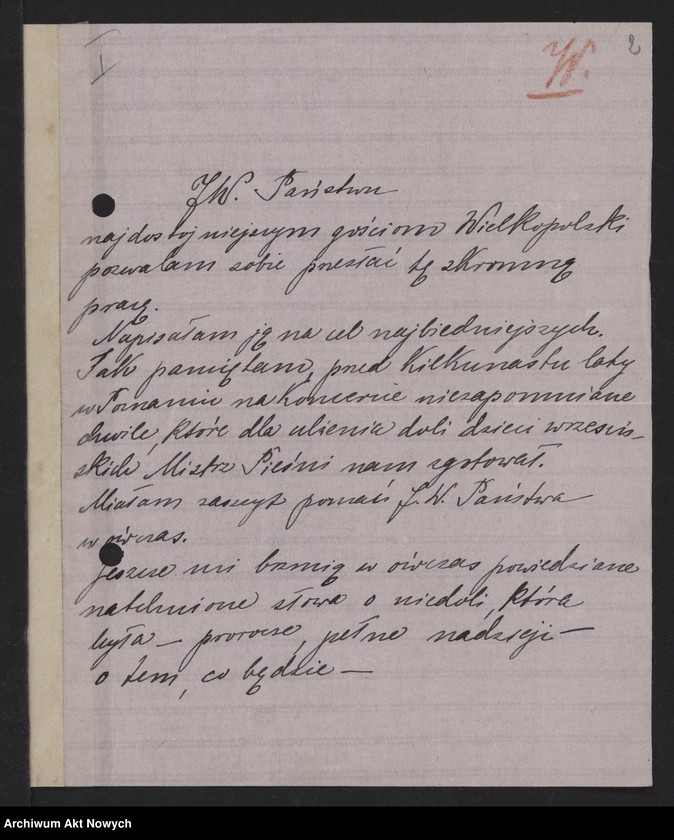 I
W.
2
JW. Państwu
najdostojniejszym gościom Wielkopolski
pozwalam sobie przesłać tę skromną
pracę.
Napisałam ją na cel najbiedniejszych.
Tak pamiętam, przed kilkunastu laty
w Poznaniu na koncercie niezapomniane
chwile, które dla ulżenia doli dzieci wrzesiń-
skich Mistrz Pieśni nam zgotował.
Miałam zaszczyt poznać J.W. Państwa
w ówczas.
Jeszcze mi brzmią w ówczas powiedziane
natchnione słowa o niedoli, która
była — prorocze, pełne nadzieji —
o tem, co będzie —
Archiwum Akt Nowych